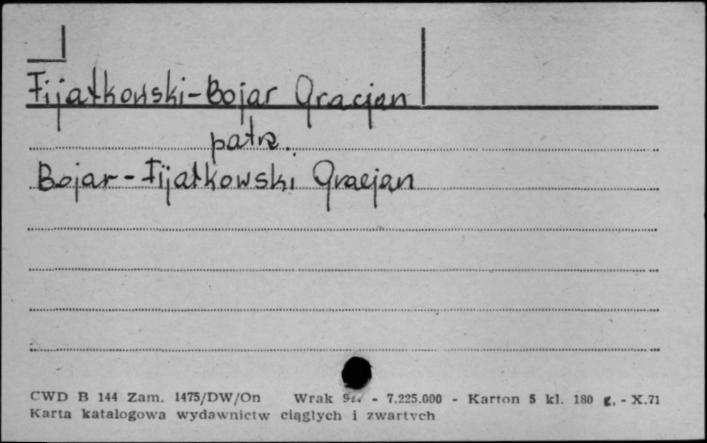 Fijałkowski-Bojar Gracjan
patrz.
Bojar-Fijałkowski Gracjan
CWD B 144 Zam. 1475/DW/On Wrak - 7.225.000 - Karton 5 kl. 180 g. - X.71
Karta katalogowa wydawnictw ciągłych i zwartych